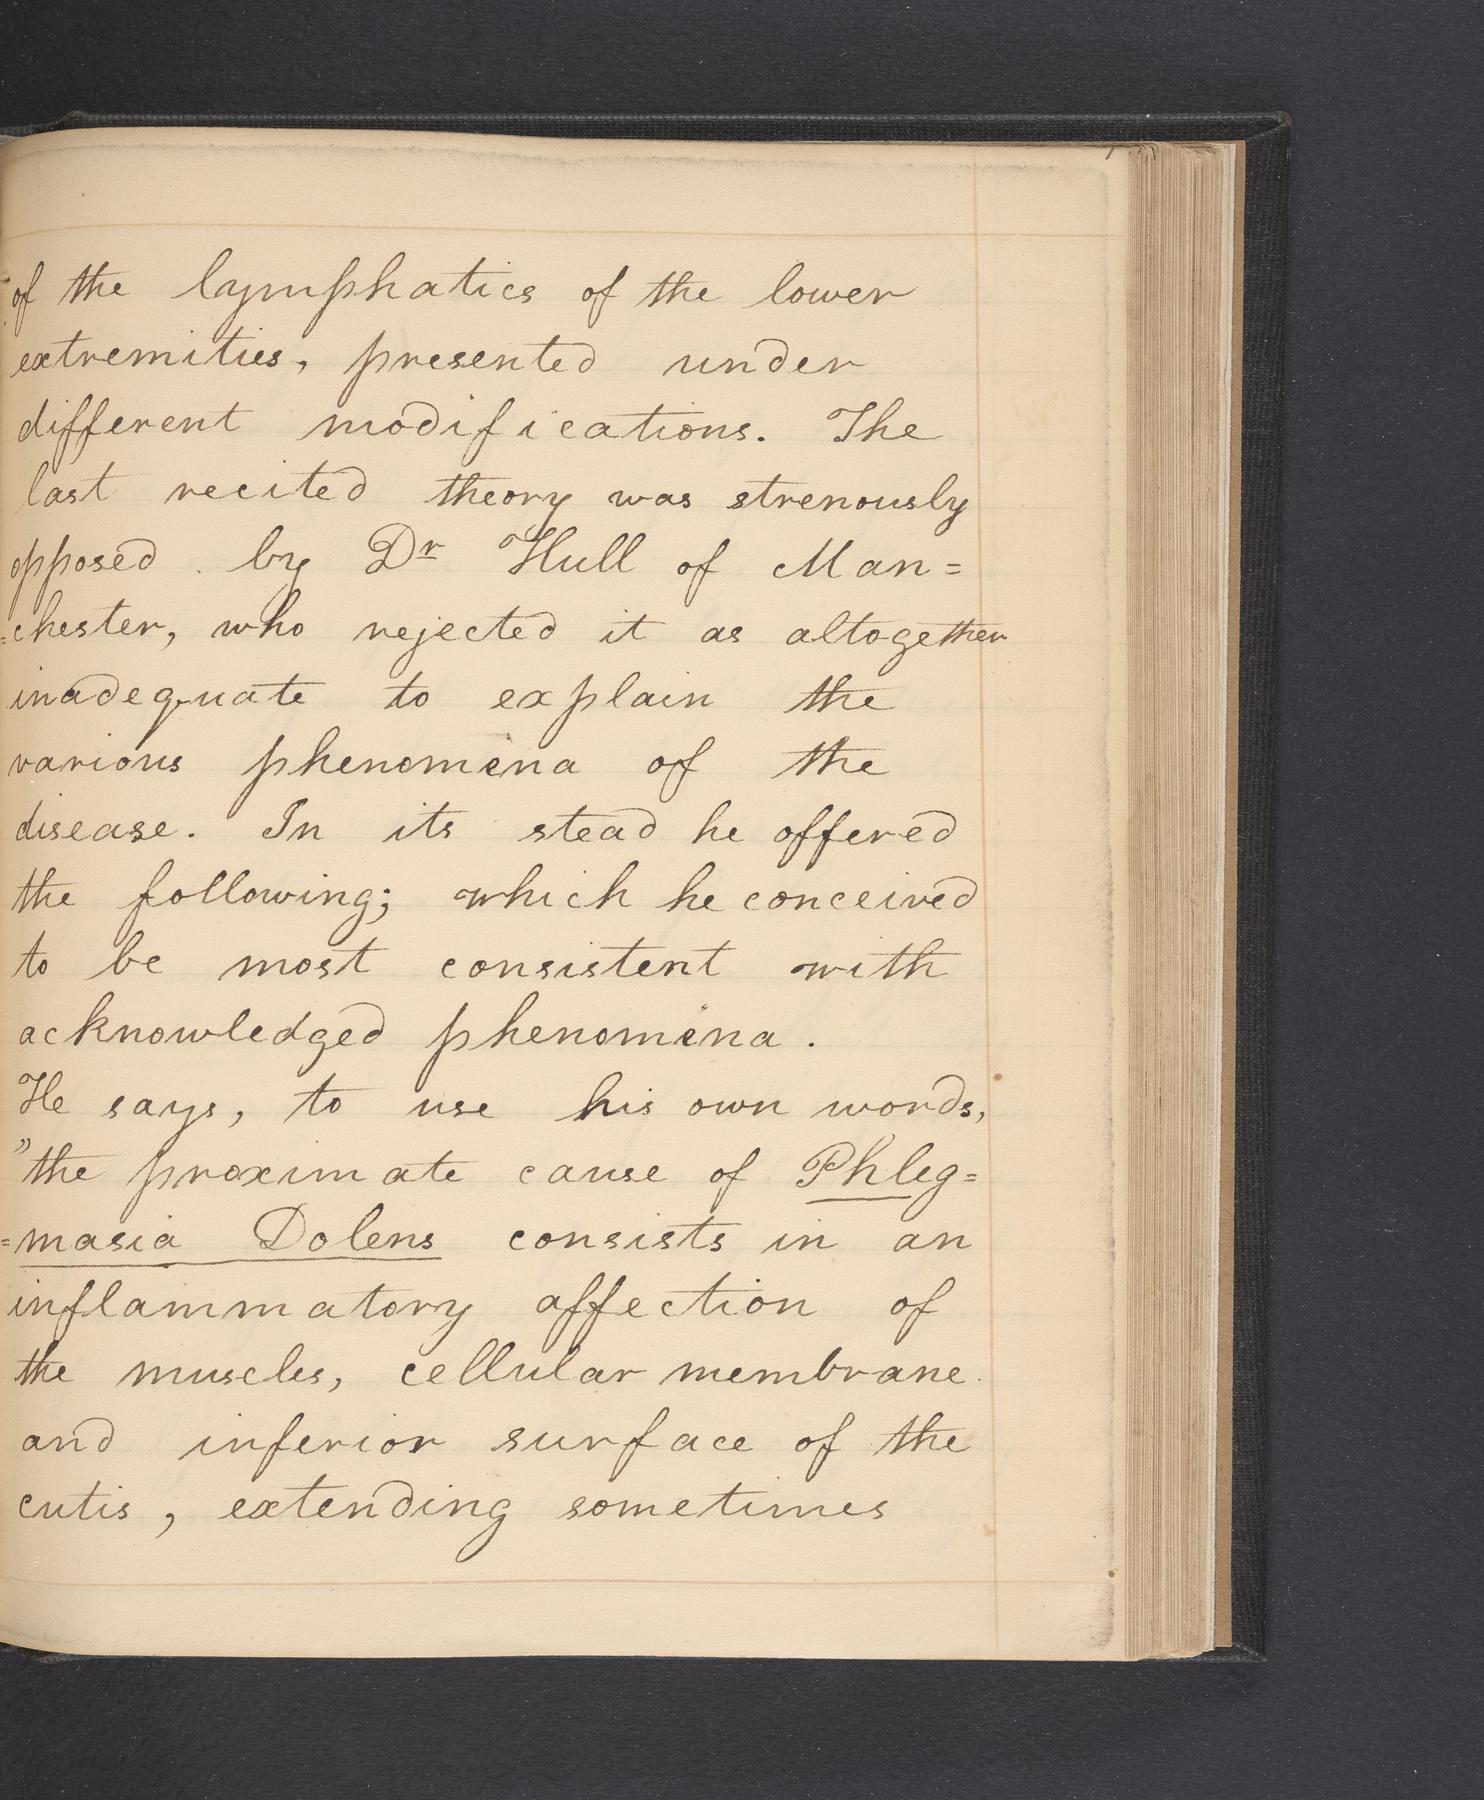 of the lymphatics of the lower
extremities, presented under
different modifications. The
last recited theory was strenously
opposed by Dr Hull of Man=
=chester, who rejected it as altogether
inadequate to explain the
various phenomena of the
disease. In its stead he offered
the following; which he conceived
to be most consistent with
acknowledged phenomena.
He says, to use his own words,
"the proximate cause of Phleg=
=masia Dolens consists in an
inflammatory affection of
the muscles, cellular membrane
and inferior surface of the
cutis, extending sometimes